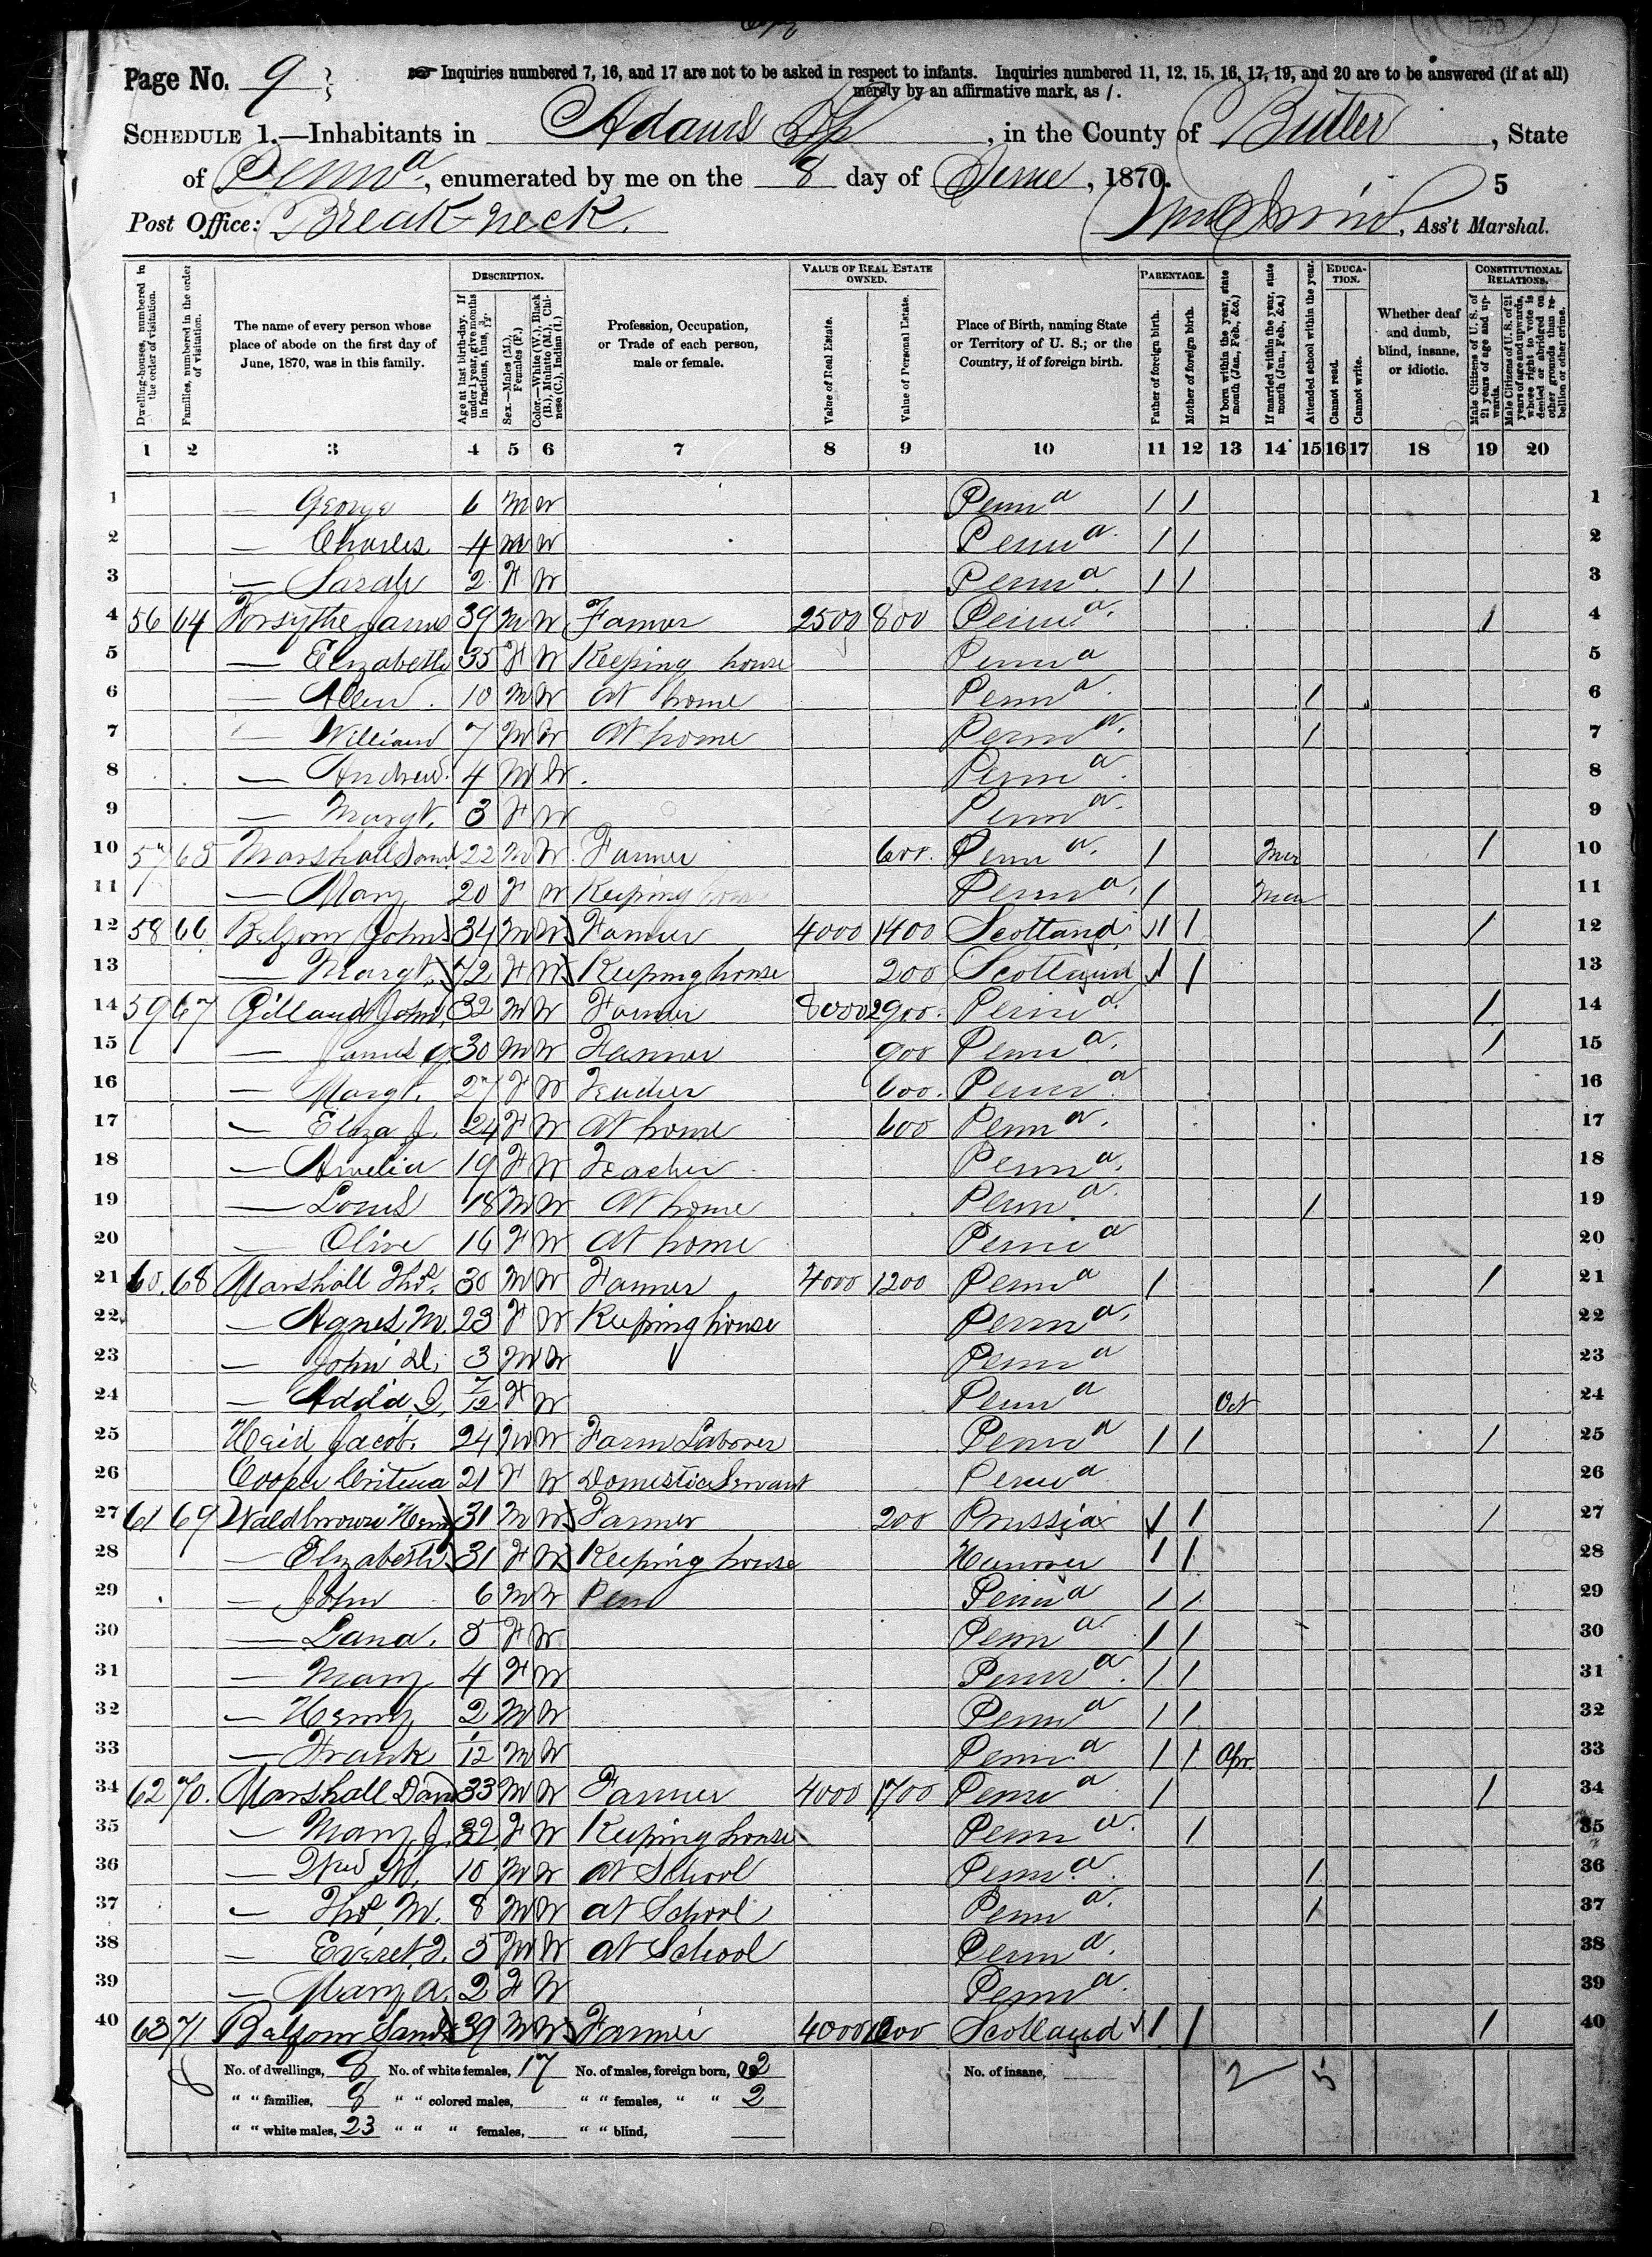 Page No. 9
☞ Inquiries numbered 7, 16, and 17 are not to be asked in respect to infants. Inquiries numbered 11, 12, 15, 16, 17, 19, and 20 are to be answered (if at all)
merely by an affirmative mark, as /.
SCHEDULE 1.—Inhabitants in Adams Tp, in the County of Butler, State
of Penna, enumerated by me on the 8 day of June, 1870.
5
Post Office: Breakneck. , Ass't Marshal.
DESCRIPTION. VALUE OF REAL ESTATE OWNED. PARENTAGE. EDUCATION. CONSTITUTIONAL RELATIONS.
Dwelling-houses, numbered in the order of visitation.
Families, numbered in the order of visitation.
The name of every person whose place of abode on the first day of June, 1870, was in this family.
Age at last birth-day. If under 1 year, give months in fractions, thus, 3/12.
Sex.—Males (M.), Females (F.)
Color.—White (W.), Black (B.), Mulatto (M.), Chinese (C.), Indian (I.)
Profession, Occupation, or Trade of each person, male or female.
Value of Real Estate.
Value of Personal Estate.
Place of Birth, naming State or Territory of U. S.; or the Country, if of foreign birth.
Father of foreign birth.
Mother of foreign birth.
If born within the year, state month (Jan., Feb., &c.)
If married within the year, state month (Jan., Feb., &c.)
Attended school within the year.
Cannot read.
Cannot write.
Whether deaf and dumb, blind, insane, or idiotic.
Male Citizens of U. S. of 21 years of age and upwards.
Male Citizens of U. S. of 21 years of age and upwards, whose right to vote is denied or abridged on other grounds than rebellion or other crime.
1 2 3 4 5 6 7 8 9 10 11 12 13 14 15 16 17 18 19 20
1 — George 6 M W Penna / / 1
2 — Charles 4 M W Penna / / 2
3 — Sarah 2 F W Penna / / 3
4 56 64 Forsythe James 39 M W Farmer 2500 800 Penna / 4
5 — Elizabeth 35 F W Keeping house Penna 5
6 — Allen 10 M W At home Penna / 6
7 — William 7 M W At home Penna / 7
8 — Andrew 4 M W Penna 8
9 — Margt. 3 F W Penna 9
10 57 65 Marshall Saml 22 M W Farmer 600 Penna / Mar / 10
11 — Mary 20 F W Keeping house Penna / Mar 11
12 58 66 John 34 M W Farmer 4000 1400 Scotland / / / 12
13 — Margt. 72 F W Keeping house 200 Scotland / / 13
14 59 67 Gilland John 32 M W Farmer 8000 2900 Penna / 14
15 — James 30 M W Farmer 900 Penna / 15
16 — Margt. 27 F W Teacher 600 Penna 16
17 — Eliza J. 24 F W At home 600 Penna 17
18 — Amelia 19 F W Teacher Penna 18
19 — Louis 18 M W At home Penna / 19
20 — Olive 16 F W At home Penna 20
21 60 68 Marshall Thos. 30 M W Farmer 4000 1200 Penna / / 21
22 — Agnes M. 23 F W Keeping house Penna 22
23 — John 3 M W Penna 23
24 — 7/12 F W Penna Oct 24
25 Heid Jacob. 24 M W Farm Laborer Penna / / / 25
26 Cooper 21 F W Domestic Servant Penna 26
27 61 69 Henry 31 M W Farmer 200 Prussia / / / 27
28 — Elizabeth 31 F W Keeping house Hanover / / 28
29 — John 6 M W Pen Penna / / 29
30 — Lana. 5 F W Penna / / 30
31 — Mary 4 F W Penna / / 31
32 — Henry 2 M W Penna / / 32
33 — Frank 1/12 M W Penna / / Apr 33
34 62 70 Marshall David 33 M W Farmer 4000 1700 Penna / / 34
35 — Mary J. 32 F W Keeping house Penna / 35
36 — 10 M W At School Penna / 36
37 — Thos. M. 8 M W At School Penna / 37
38 — Everet 5 M W At School Penna 38
39 — Mary A. 2 F W Penna 39
40 63 71 39 M W Farmer 4000 Scotland / / / 40
No. of dwellings, 8 No. of white females, 17 No. of males, foreign born, 2 No. of insane, 2 5
" " families, 8 " " colored males, " " females, " " 2
" " white males, 23 " " " females, " " blind,